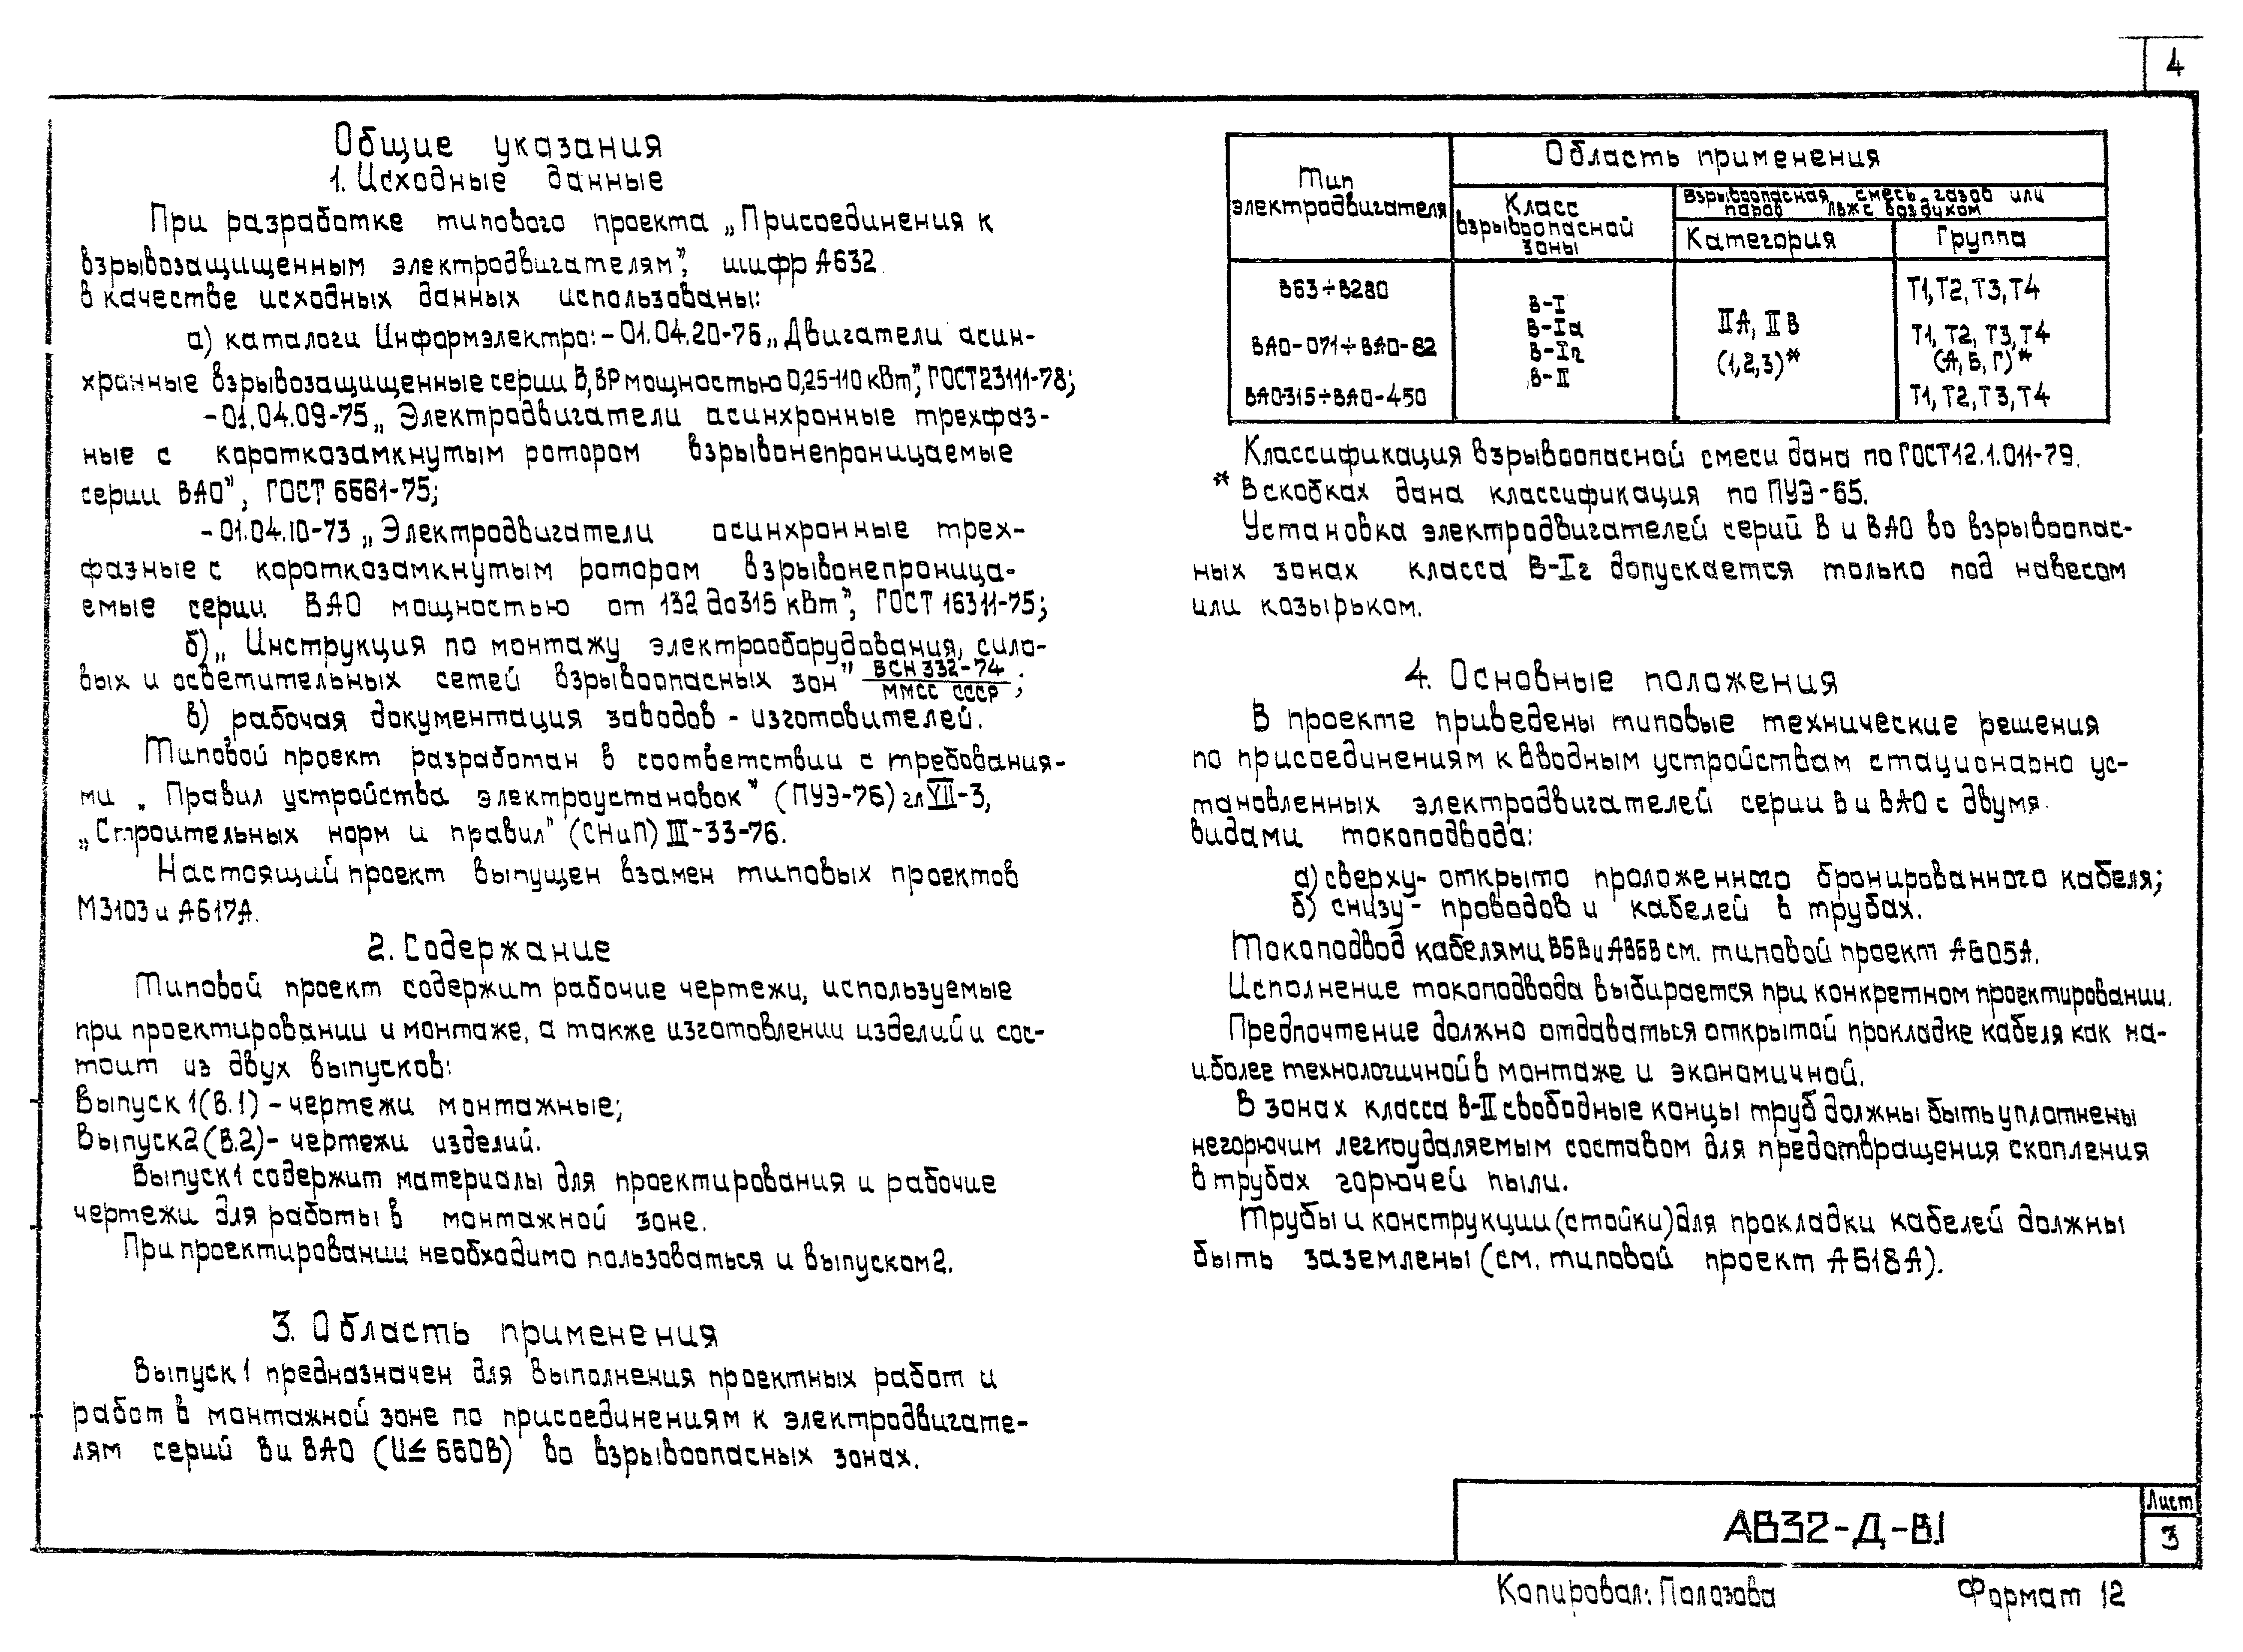 4
Общие указания
1. Исходные данные
При разработке типового проекта „Присоединения к
взрывозащищенным электродвигателям", шифр А632
в качестве исходных данных использованы:
а) каталоги Информэлектро: - 01.04.20-76 „Двигатели асин-
хронные взрывозащищенные серии В, ВР мощностью 0,25-110 кВт", ГОСТ 23111-78;
- 01.04.09-75 „Электродвигатели асинхронные трехфаз-
ные с короткозамкнутым ротором взрывонепроницаемые
серии ВАО", ГОСТ 6661-75;
- 01.04.10-73 „Электродвигатели асинхронные трех-
фазные с короткозамкнутым ротором взрывонепроница-
емые серии ВАО мощностью от 132 до 315 кВт", ГОСТ 16311-75;
б) „Инструкция по монтажу электрооборудования, сило-
вых и осветительных сетей взрывоопасных зон" ВСН 332-74 / ММСС СССР;
в) рабочая документация заводов - изготовителей.
Типовой проект разработан в соответствии с требования-
ми „Правил устройства электроустановок" (ПУЭ-76) гл VII-3,
„Строительных норм и правил" (СНиП) III-33-76.
Настоящий проект выпущен взамен типовых проектов
М3103 и А617А.
2. Содержание
Типовой проект содержит рабочие чертежи, используемые
при проектировании и монтаже, а также изготовлении изделий и сос-
тоит из двух выпусков:
Выпуск 1 (В.1) - чертежи монтажные;
Выпуск 2 (В.2) - чертежи изделий.
Выпуск 1 содержит материалы для проектирования и рабочие
чертежи для работы в монтажной зоне.
При проектировании необходимо пользоваться и выпуском 2.
3. Область применения
Выпуск 1 предназначен для выполнения проектных работ и
работ в монтажной зоне по присоединениям к электродвигате-
лям серий В и ВАО (U ≤ 660В) во взрывоопасных зонах.
Тип электродвигателя
Область применения
Класс взрывоопасной зоны
Взрывоопасная смесь газов или
паров ЛВЖ с воздухом
Категория Группа
В63÷В280 Т1, Т2, Т3, Т4
В-I
В-Iа
В-Iг
В-II
IIА, IIВ
(1,2,3)*
ВАО-071÷ВАО-82 Т1, Т2, Т3, Т4
(А, Б, Г)*
ВАО315÷ВАО-450 Т1, Т2, Т3, Т4
Классификация взрывоопасной смеси дана по ГОСТ 12.1.011-79.
* В скобках дана классификация по ПУЭ-65.
Установка электродвигателей серий В и ВАО во взрывоопас-
ных зонах класса В-Iг допускается только под навесом
или козырьком.
4. Основные положения
В проекте приведены типовые технические решения
по присоединениям к вводным устройствам стационарно ус-
тановленных электродвигателей серии В и ВАО с двумя
видами токоподвода:
а) сверху - открыто проложенного бронированного кабеля;
б) снизу - проводов и кабелей в трубах.
Токоподвод кабелями ВБВ и АВБВ см. типовой проект А605А.
Исполнение токоподвода выбирается при конкретном проектировании.
Предпочтение должно отдаваться открытой прокладке кабеля как на-
иболее технологичной в монтаже и экономичной.
В зонах класса В-II свободные концы труб должны быть уплотнены
негорючим легкоудаляемым составом для предотвращения скопления
в трубах горючей пыли.
Трубы и конструкции (стойки) для прокладки кабелей должны
быть заземлены (см. типовой проект А618А).
А632-Д-В.1
Лист
3
Копировал: Полозова Формат 12